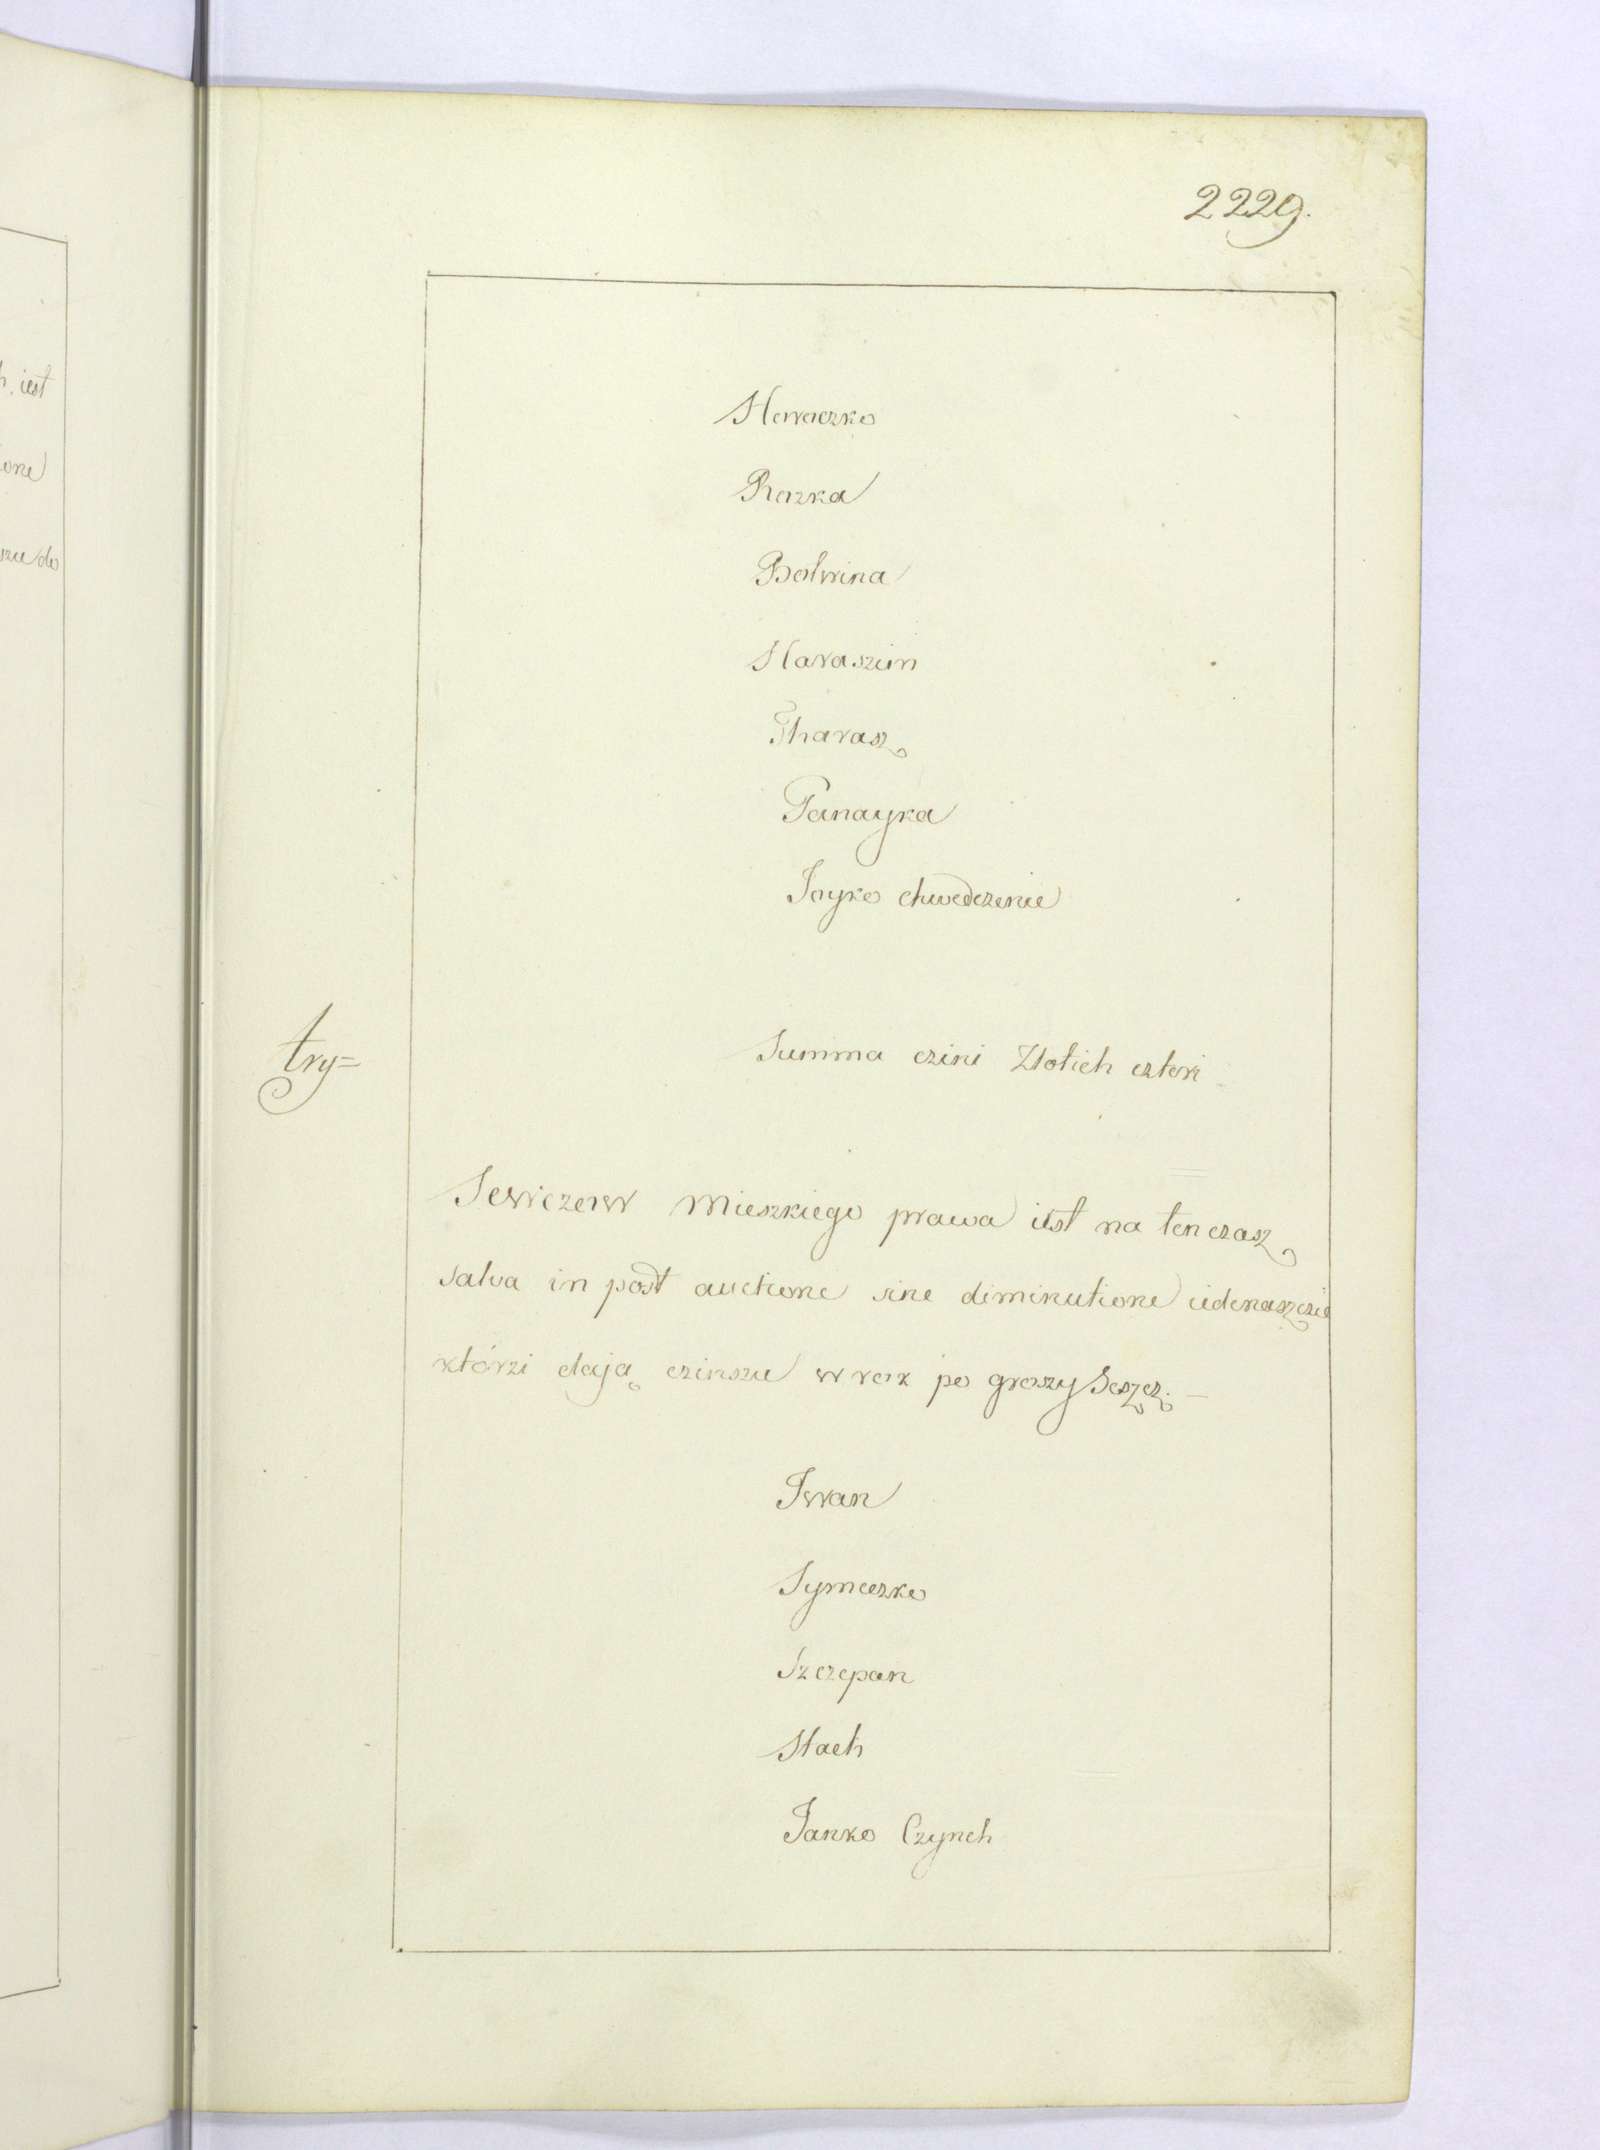 2229.
Hawaczko
Razka
Botwina
Haraszim
Tharasz
Panayka
Jayko chwedczenie
try=
Summa czini Złotich czteri
Sewczew Mieszkiego prawa iest na tenczasz
salva in post auctione sine diminutione iedenaszczie
którzi dają czinszu w rok po groszy Seszcz. –
Iwan
Symeczko
Szczepan
Stach
Janko Czynch
iest
one
szu do